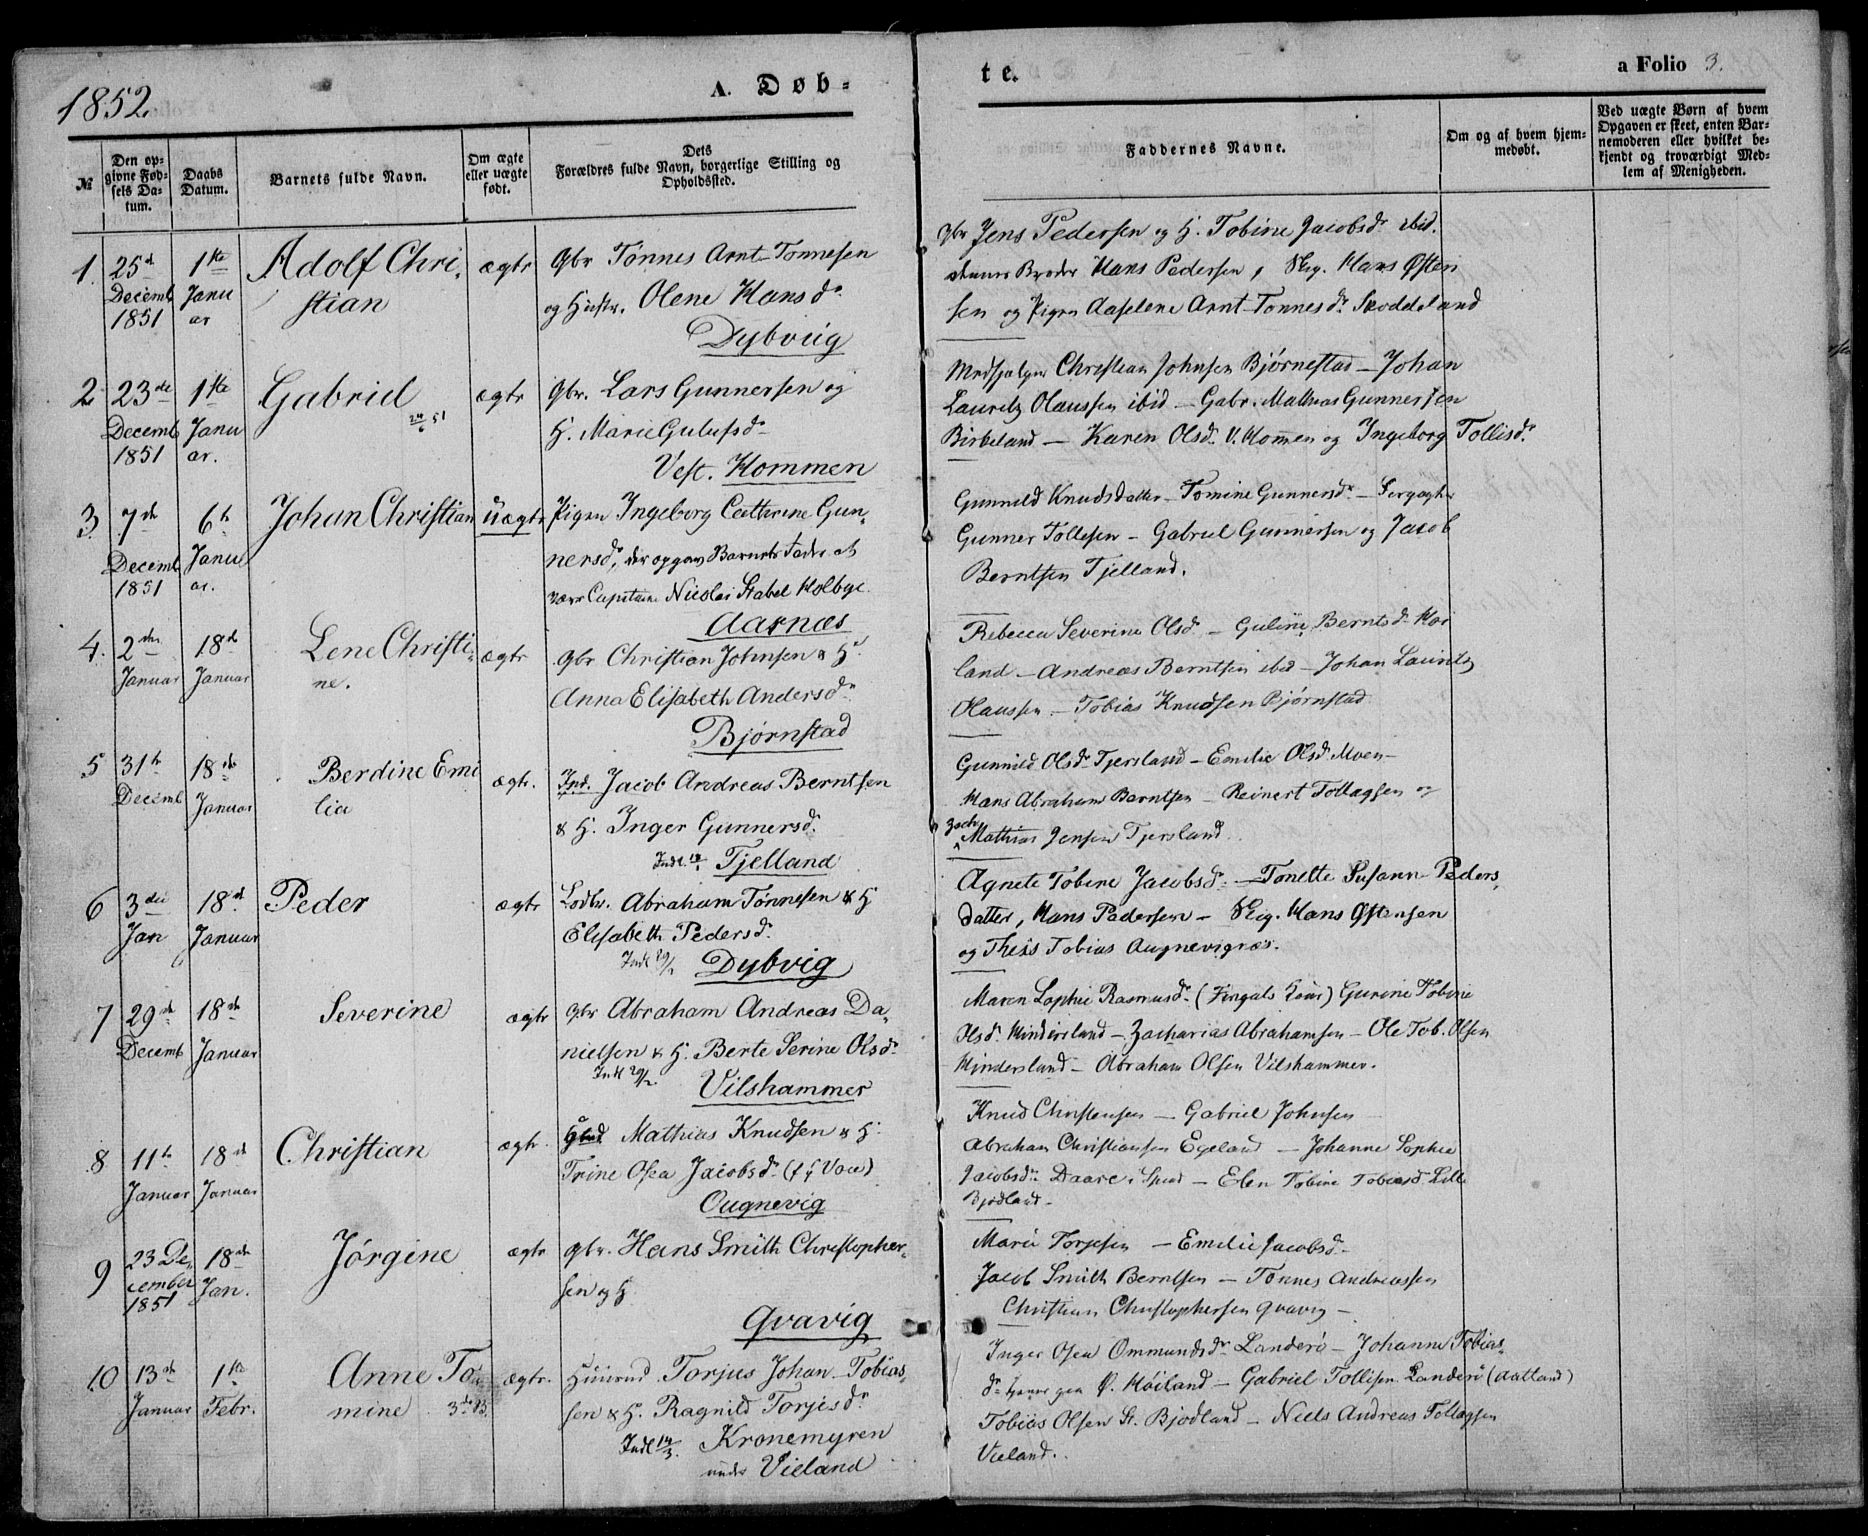 1852.
A. Døb-
te.
a Folio 3.
№
Den op-
givne Fød-
sels Da-
tum.
Daabs
Datum.
Barnets fulde Navn.
Om ægte
eller uægte
født.
Dets
Forældres fulde Navn, borgerlige Stilling og
Opholdssted.
Faddernes Navne.
Om og af hvem hjem-
medøbt.
Ved uægte Børn af hvem
Opgaven er skeet, enten Bar-
nemoderen eller hvilket be-
kjendt og troværdigt Med-
lem af Menigheden.
1. 25d Decemb 1851
1ste Janu ar
Adolf Chri-
stian
ægte
Gbr Tönnes Arnt Tonnesen
og Hustr. Olene Hansdr
Dybvig
Gbr Jens Pedersen og H. Tobine Jacobsdr ibid.
Broder Hans Pedersen, Hans Østen
sen og Pigen Aaselene Arnt Tonnesdr Skoddeland
2 23de Decemb 1851
1ste Janu ar.
Gabriel
ægte
Gbr. Lars Gunnersen og
H. Marie Gulufsdr
Vest. Hommen
Christian Johnsen Bjørnestad - Johan
Lauritz Olaussen ibid - Gabr. Mathias Gunnersen
Birkeland - Karen Olsdr V. Hommen og Ingeborg Tollisdr
3. 7de Decemb 1851
6te Janu ar.
Johan Christian
uægte
Pigen Ingeborg Cathrine Gun-
nersdr, der opgav Barnets Fader at
være Capitaine Nicolai Stabel Holbye.
Aarnæs
Gunnild Knudsdatter - Tomine Gunnersdr -
Gunner Tollesen - Gabriel Gunnersen og Jacob
Berntsen Tjelland.
4. 2den Januar
18de Januar
Lene Christi-
ne.
ægte
Gbr Christian Johnsen & H.
Anna Elisabeth Andersdr
Bjørnstad
Rebecca Severine Olsd. - Guline Berntsdr Hov
land - Andreas Berntsen ibd - Johan Lauritz
Olaussen - Tobias Knudsen Bjørnstad
5 31te Decemb
18de Januar
Berdine Emi
lia
ægte.
Ind. Jacob Andreas Berntsen
& H. Inger Gunnersdr.
Tjelland
Gunnild Olsdr Tjersland - Emilie Olsdr Moen -
Hans Abraham Berntsen - Reinert Tollagsen og
Zach. Mathias Jensen Tjersland
6 3die Jan
18d. Januar
Peder
ægte
Lodbr. Abraham Tönnesen & H
Elisabeth Pedersdr.
Dybvig
Agnete Tobine Jacobsdr - Tonette Susanne Peders-
datter, Hans Pedersen - Hans Østensen
og Theis Tobias Augnevignæs.
7 29de Decemb
18de Januar
Severine
ægte
Gbr Abraham Andreas Da-
nielsen & H. Berte Serine Olsdr
Vilshammer
Maren Sophie Rasmusdr - Gurine Tobine
Olsdr Hindersland - Zacharias Abrahamsen - Ole Tob. Olsen
Hindersland - Abraham Olsen Vilshammer.
8 11te Januar
18de Januar
Christian
ægte.
Mathias Knudsen & H.
Trine Osea Jacobsdr
Ougnevig
Knud Christensen - Gabriel Johnsen
Abraham Christiansen Egeland - Johanne Sophie
Jacobsdr Daare i Spind - Elen Tobine Tobiasd Lille
Bjodland -
9 23 De- cember 1851
18de Jan.
Jørgine
ægte
Gbr. Hans Smith Christopher-
sen og H
Qvavig
Marie Torjesen - Emilie Jacobsdr
Jacob Smith Berntsen - Tonnes Andreassen
Christian Christophersen Qvavig -
10 13de Januar
1ste Febr.
Anne To-
mine
ægte.
Huusmd Torjus Johan Tobias-
sen & H. Ragnild Torjesdr
Kronemyren
under Vieland
Inger Osea Ommundsdr Landerö - Johanne Tobias-
dr Ø. Höiland - Gabriel Tollisen Landerö (Aatland)
Tobias Olsen St. Bjodland - Niels Andreas Tollagsen
Vieland.